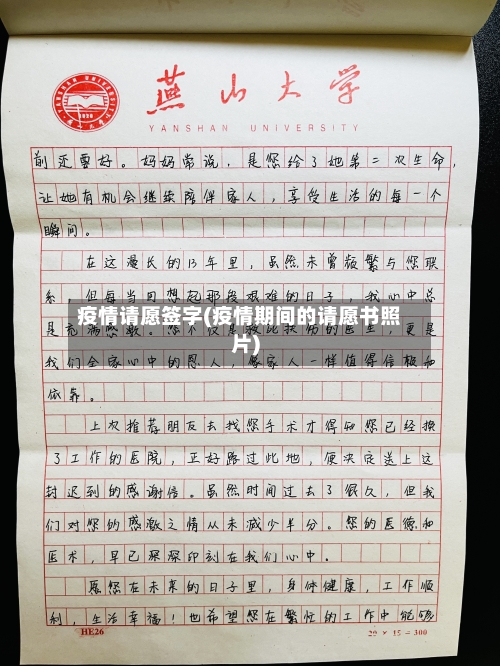 燕山大学
YANSHAN UNIVERSITY
前还要好。妈妈常说，是您给了她第二次生命，
让她有机会继续陪伴家人，享受生活的每一个
瞬间。
在这漫长的13年里，虽然未曾频繁与您联
系，但每当回想起那段艰难的日子，我心中总
疫情请愿签字(疫情期间的请愿书照
片)
是充满感激。您不仅是救死扶伤的医生，更是
我们全家心中的恩人，像家人一样值得信赖和
依靠。
上次推荐朋友去找您手术才得知您已经换
了工作的医院，正好路过此地，便决定送上这
封迟到的感谢信。虽然时间过去了很久，但我
们对您的感激之情从未减少半分。您的医德和
医术，早已深深印刻在我们心中。
愿您在未来的日子里，身体健康，工作顺
利，生活幸福！也希望您在繁忙的工作中能够
HE26
20 × 15 = 300